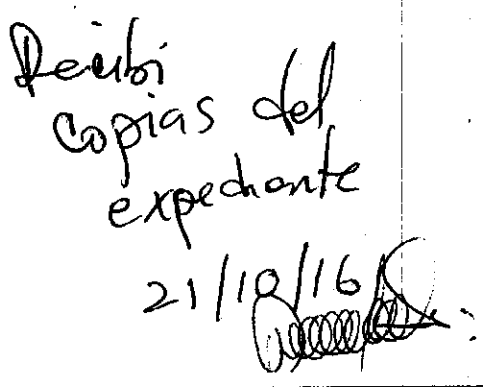 Recibí
copias del
expediente
21/10/16